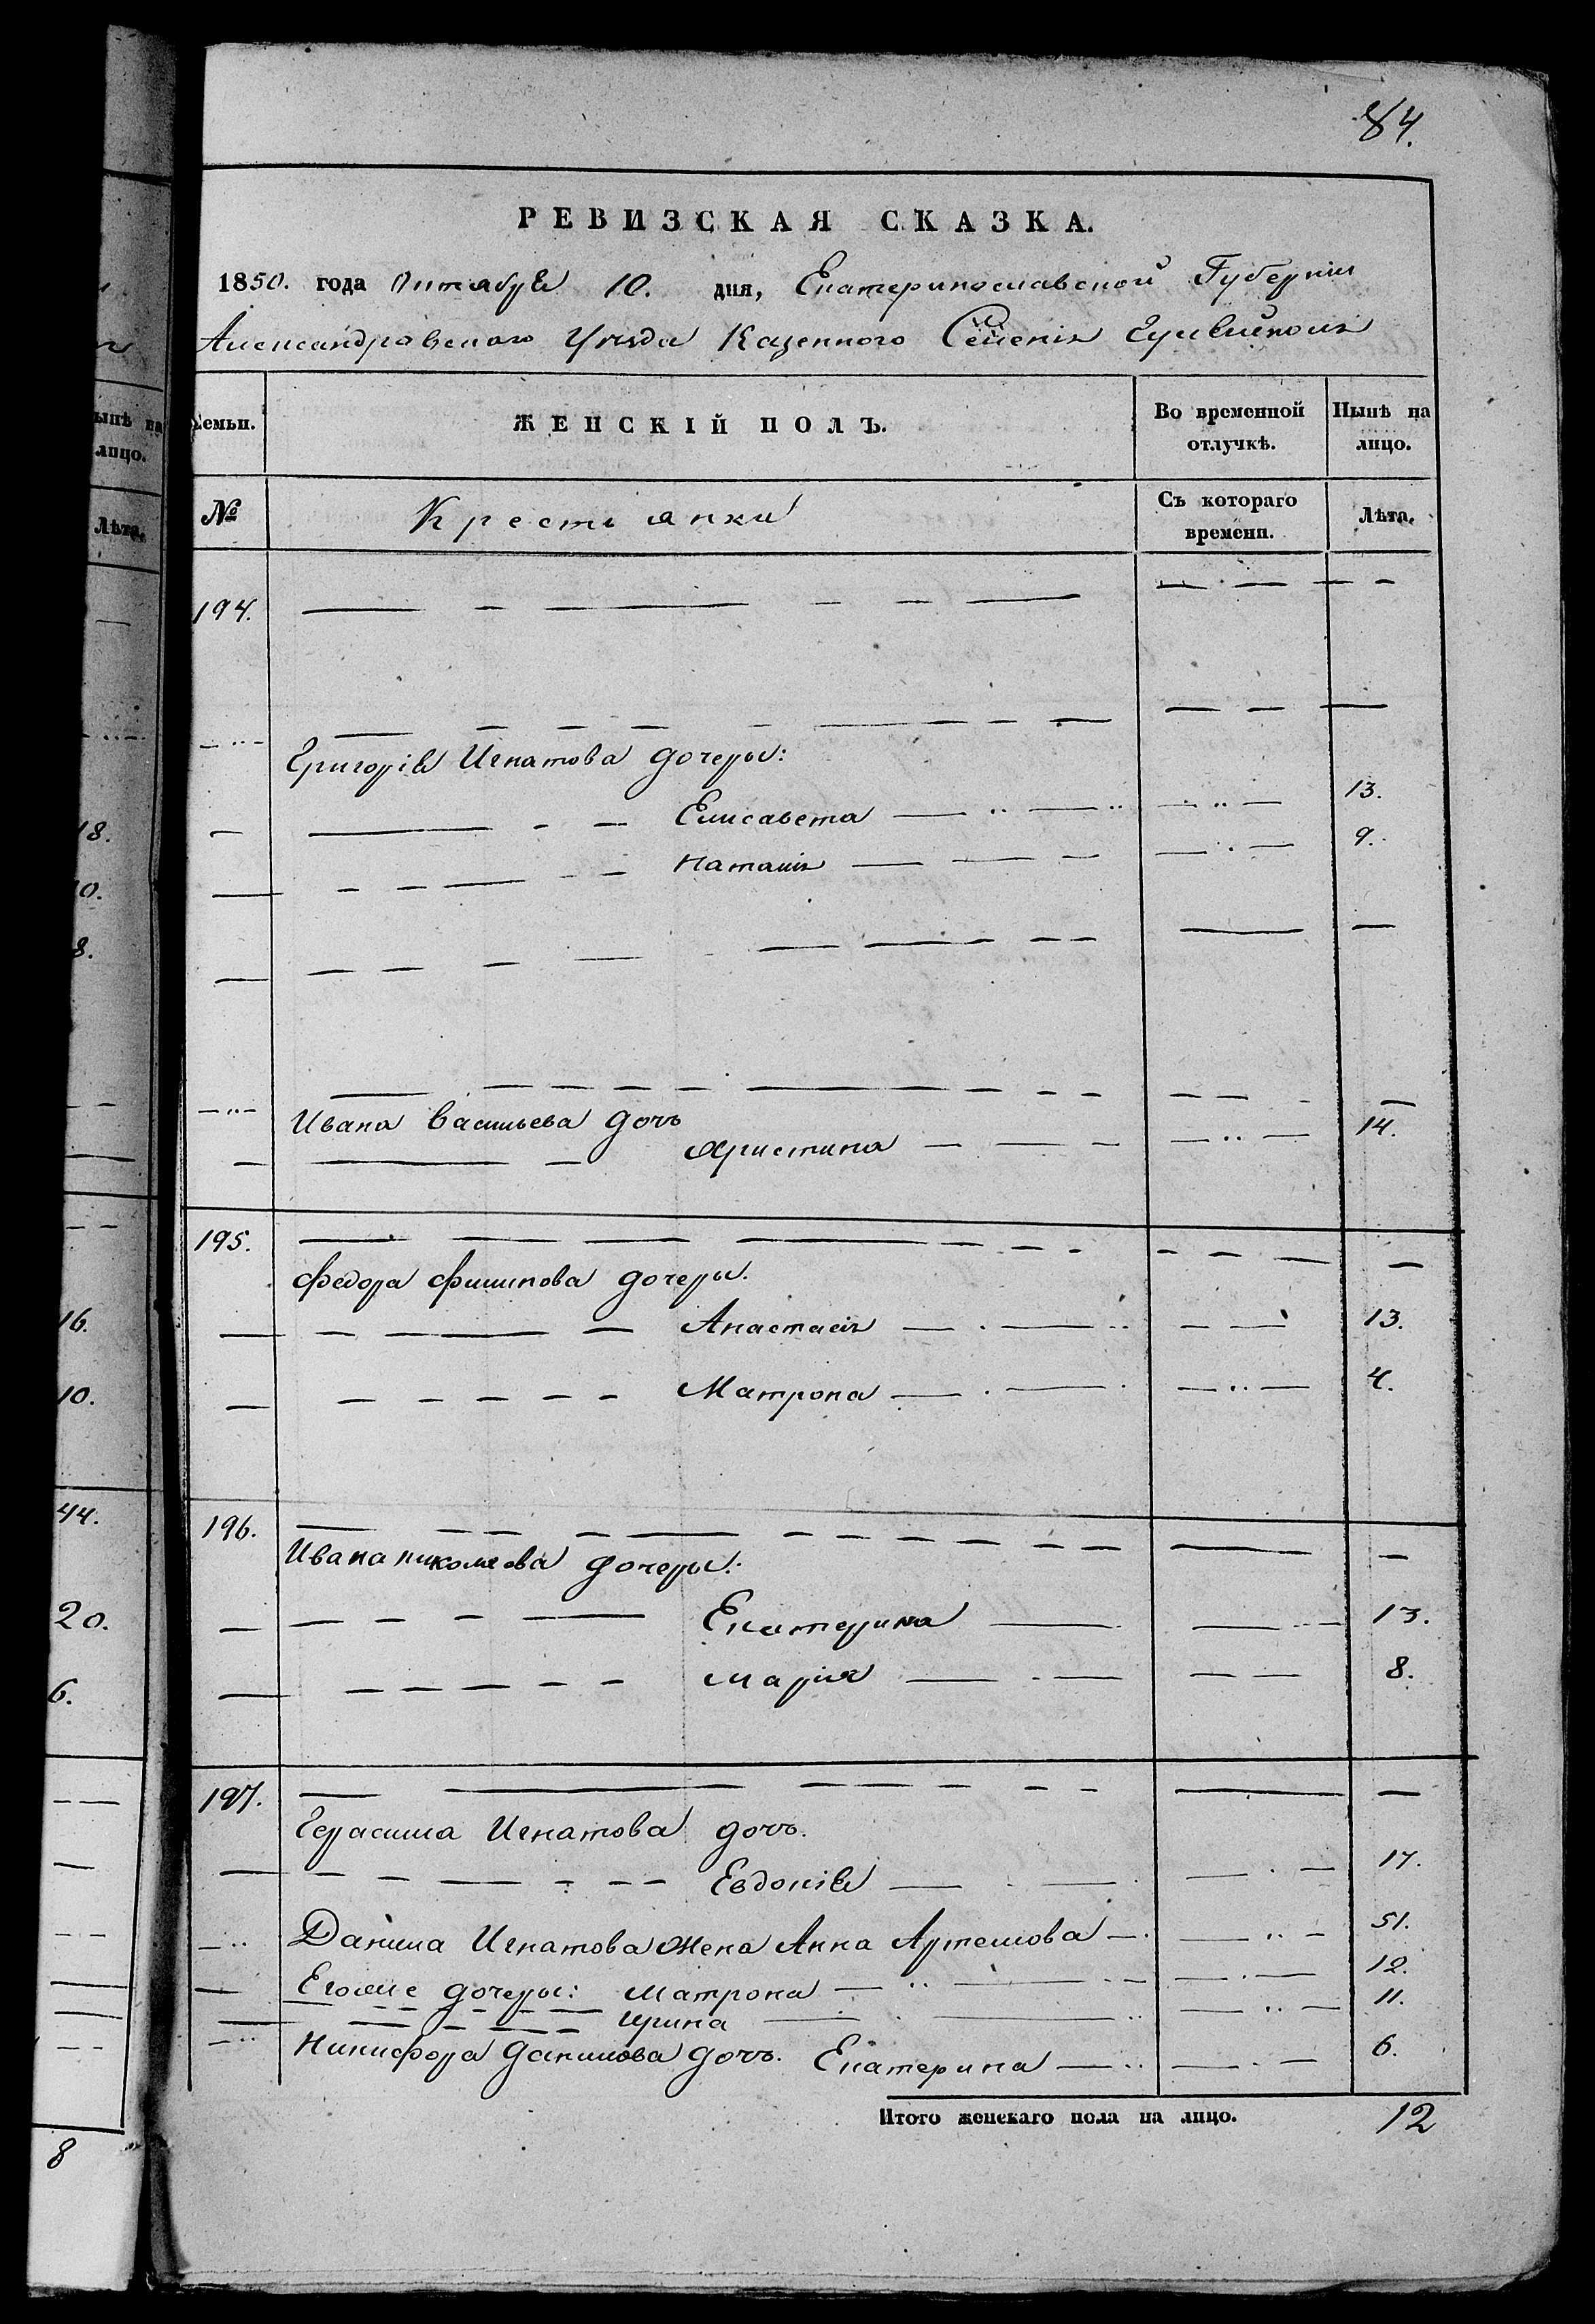 84.
РЕВИЗСКАЯ СКАЗКА.
1850. года Октября 10. дня, Екатеринославской Губернии
Александровского Уезда Казенного Селения
Семьи. ЖЕНСКІЙ ПОЛЪ. Во временной отлучкѣ. Нынѣ на лицо.
№ Крестьянки Съ котораго времени. Лѣта.
194.
Григорія Игнатова дочеры:
Елисавета 13.
Наталія 9.
Ивана Васильева дочь
Христина 14.
195.
Федора Филипова дочеры.
Анастасія 13.
Матрона 4.
196.
Ивана Николаева дочеры:
Екатерина 13.
Марія 8.
197.
Герасима Игнатова дочь.
Евдокія 17.
Данила Игнатова жена Анна Артемова 51.
Егоже дочеры: Матрона 12.
Ирина 11.
Никифора Данилова дочь. Екатерина 6.
Итого женскаго пола на лицо. 12
ынѣ на
лицо.
Лѣта.
18.
10.
8.
16.
10.
44.
20.
6.
8